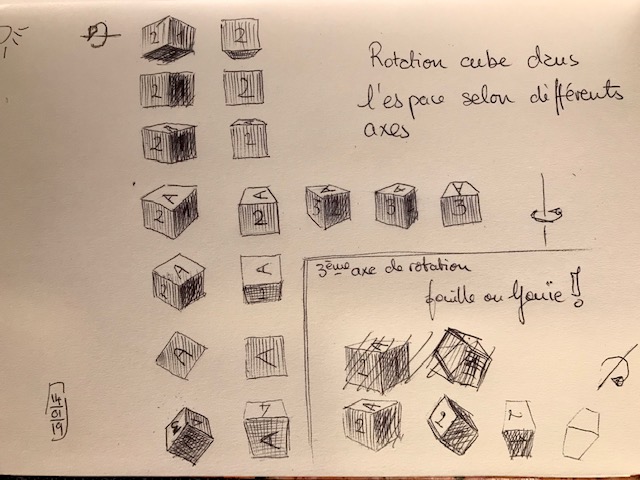 2 1 2
Rotation cube dans
2 2
l'espace selon différents
2 2
axes
A A A A A
2 2 3 3 3
3ème axe de rotation
A A
2
fouille ou !
A A
A A
2
14
01
19
A
2 2 2
3 A